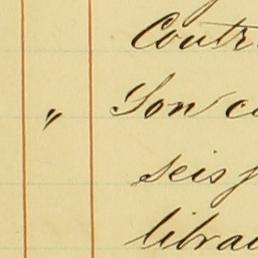 Contr
" Son c
seis p
librau